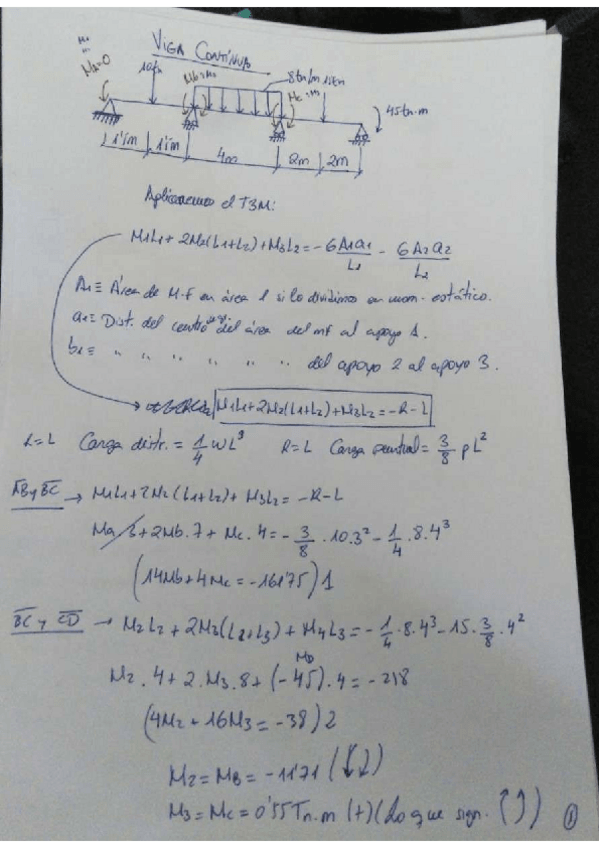 VIGA CONTÍNUA
MA=0
10tn
Mb=M2
8tn/m 15tn
Mc=
45tn·m
1'5m 1'5m 4m 2m 2m
Aplicaremos el T3M:
M1L1 + 2M2(L1+L2)+M3L2=-6A1a1/L1 - 6A2a2/L2
A1≡ Área de M.f en área 1 si lo dividimos en mom. estático.
a1≡ Dist. del centro del área del mf al apoyo 1.
b1≡ " " " " " " del apoyo 2 al apoyo 3.
M1L1+2M2(L1+L2)+M3L2=-R-L
R=L Carga distr.= 1/4 WL³ R=L Carga puntual= 3/8 PL²
AB y BC → M1L1+2M2(L1+L2)+M3L2=-R-L
Ma/3+2Mb.7+Mc.4=-3/8.10.3²-1/4.8.4³
(14Mb+4Mc=-161'75)1
BC y CD → M2L2+2M3(L2+L3)+M4L3=-1/4.8.4³-15.3/8.4²
MD
M2.4+2.M3.8+(-45).4=-218
(4M2+16M3=-38)2
M2=MB=-11'71
M3=MC=0'55Tn.m (+)(Lo que sign.
1